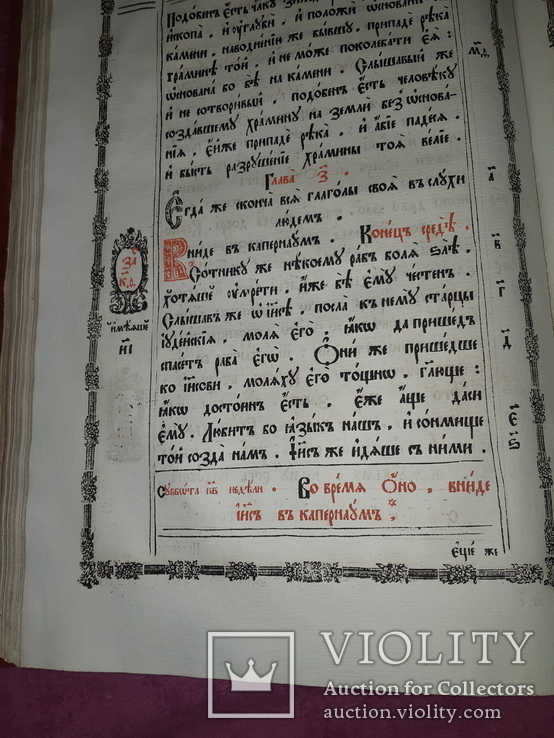 Подобенъ є҆сть чл҃ку
и҆скопа̀ . и҆ ᲂу҆глꙋбѝ . и҆ положѝ ѡ҆снова́нїе
ка́мени . наводне́нїю же бы́вшꙋ . припадѐ рѣка̀
хра́минѣ то́й . и҆ не мо́же поколеба́ти є҆ѧ̀ :
ѡ҆снована̀ бо бѣ̀ на ка́мени . Слы́шавый же
и҆ не сотвори́вый . подо́бенъ є҆́сть человѣ́кꙋ
созда́вшемꙋ хра́минꙋ на землѝ без̾ ѡ҆снова́-
нїѧ . є҆́йже припадѐ рѣка̀ . и҆ а҆́бїе паде́сѧ .
и҆ бы́сть разрꙋше́нїе хра́мины тоѧ̀ ве́лїе .
м҃д
Глава̀ з҃ .
Є҆гда́ же сконча̀ всѧ̑ глаго́лы своѧ̑ въ слꙋ́хи
лю́демъ .
а҃
Вни́де въ капернаꙋ́мъ . Коне́цъ средѣ̀ .
Со́тникꙋ же нѣ́коемꙋ ра́бъ болѧ̀ ѕлѣ̀ .
в҃
хотѧ́ше ᲂу҆мре́ти . и҆́же бѣ̀ є҆мꙋ̀ че́стенъ .
Слы́шавъ же ѡ҆ і҆и҃сѣ . посла̀ къ немꙋ̀ ста́рцы
г҃
і҆ꙋде́йскїѧ . молѧ̀ є҆го̀ . ꙗ҆́кѡ да прише́дъ
спасе́тъ раба̀ є҆гѡ̀ . Ѻ҆ни́ же прише́дше
д҃
ко і҆и҃сови . молѧ́хꙋ є҆го̀ то́щнѡ . гл҃юще :
ꙗ҆́кѡ досто́инъ є҆́сть . є҆́же а҆́ще да́си
є҆мꙋ̀ . Лю́битъ бо ꙗ҆зы́къ на́шъ . и҆ со́нмище
е҃
то́й созда̀ на́мъ . І҆и҃съ же и҆дѧ́ше съ ни́ми .
ѕ҃
За
к҃д
и҆мѣ́ѧше
н҃і
Сꙋббѡ́та недѣ́ли . Во вре́мѧ ѻ҆́но . вни́де
і҆и҃съ въ капернаꙋ́мъ .
є҆щѐ же
VIOLITY
Auction for Collectors
auction.violity.com